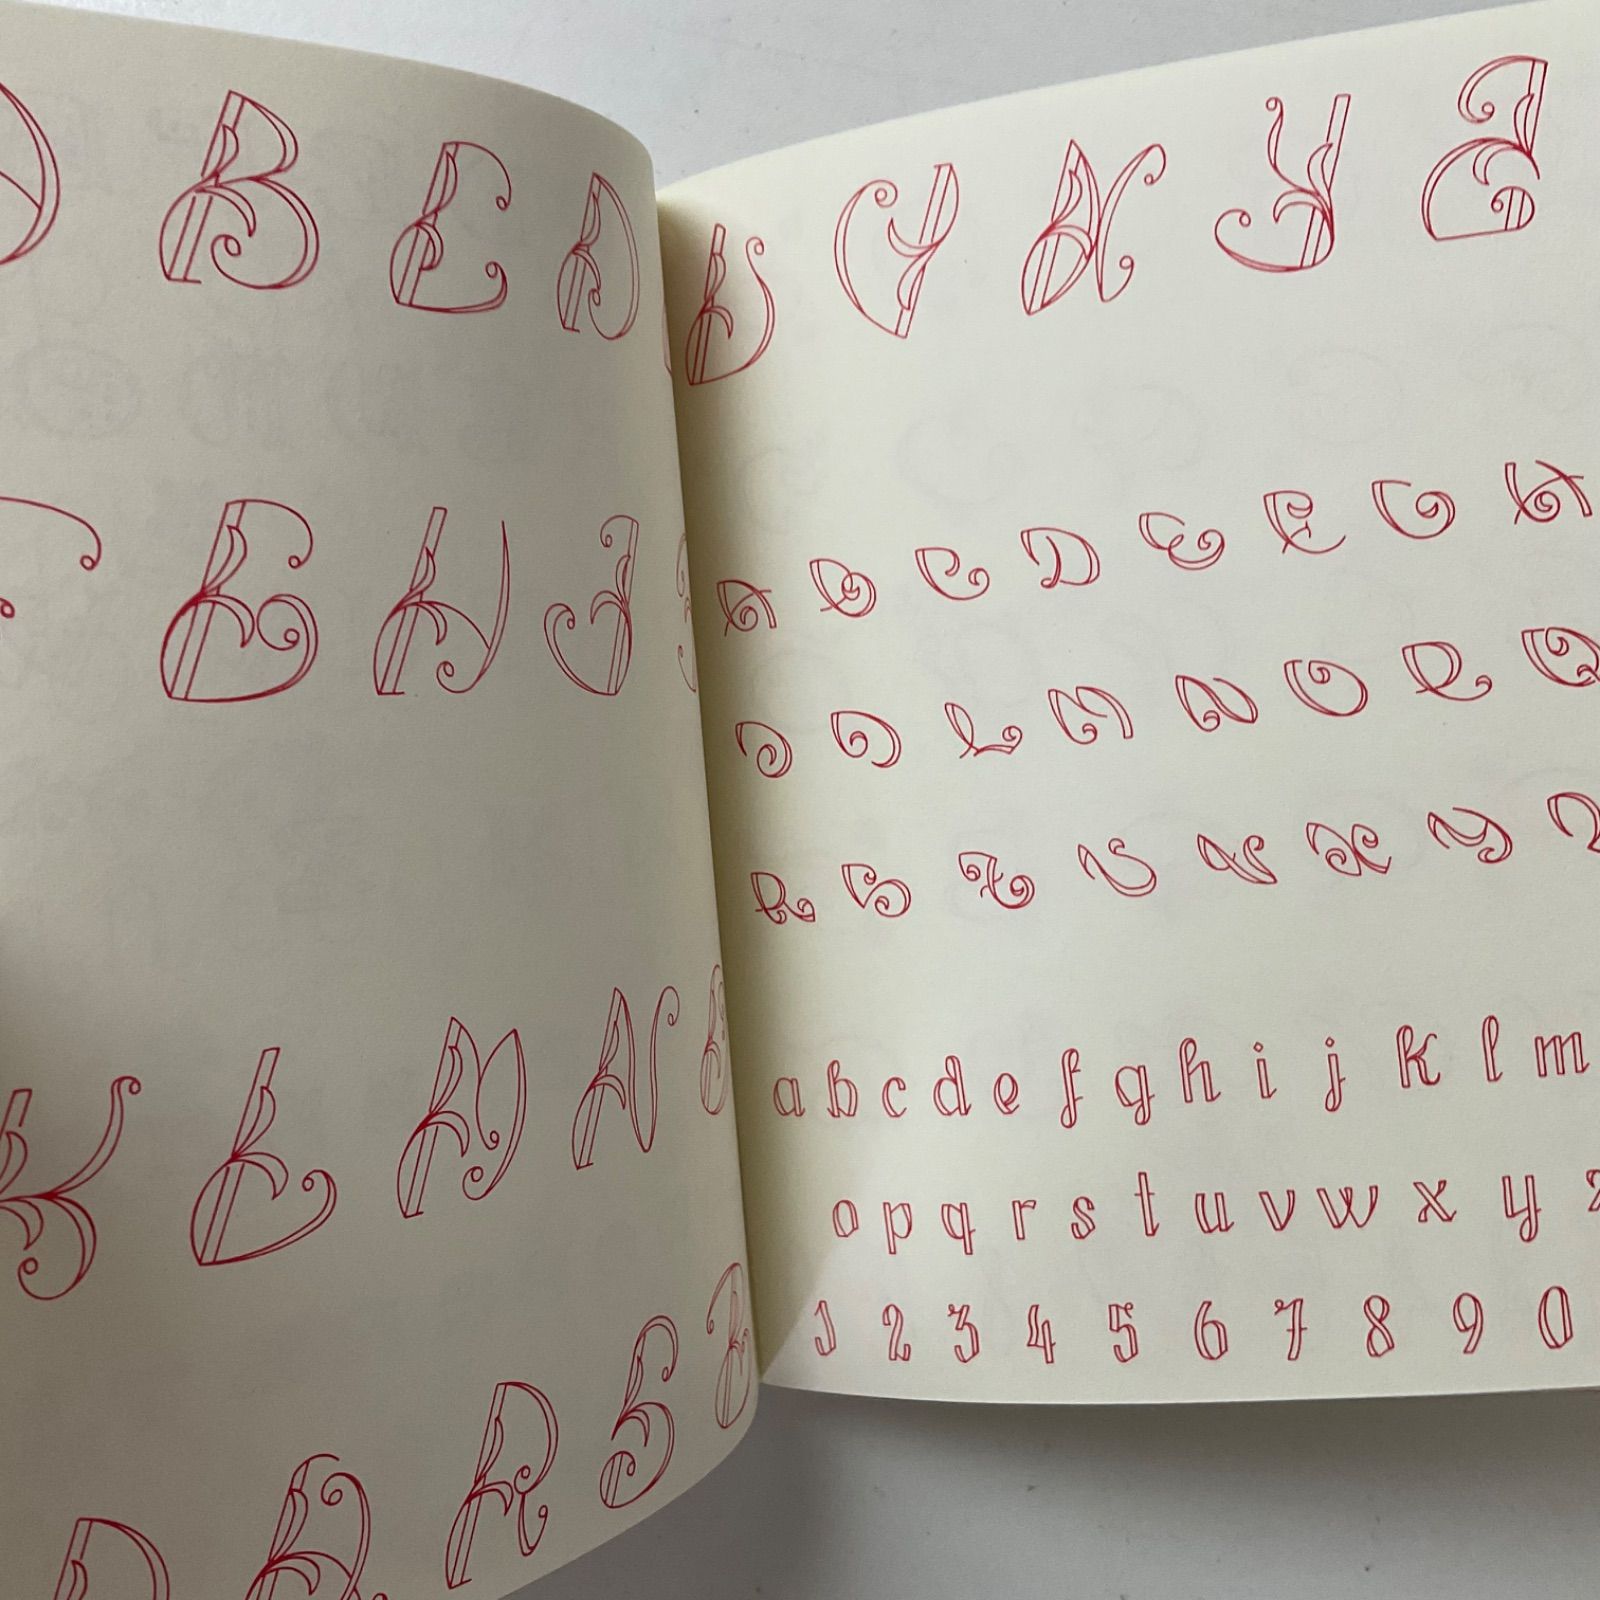 B C D
G H J
K L M N
P Q R S
U V X Y Z
A B C D E F G H
J L M N O P Q
R S T U V X Y Z
a b c d e f g h i j k l m
o p q r s t u v w x y z
1 2 3 4 5 6 7 8 9 0